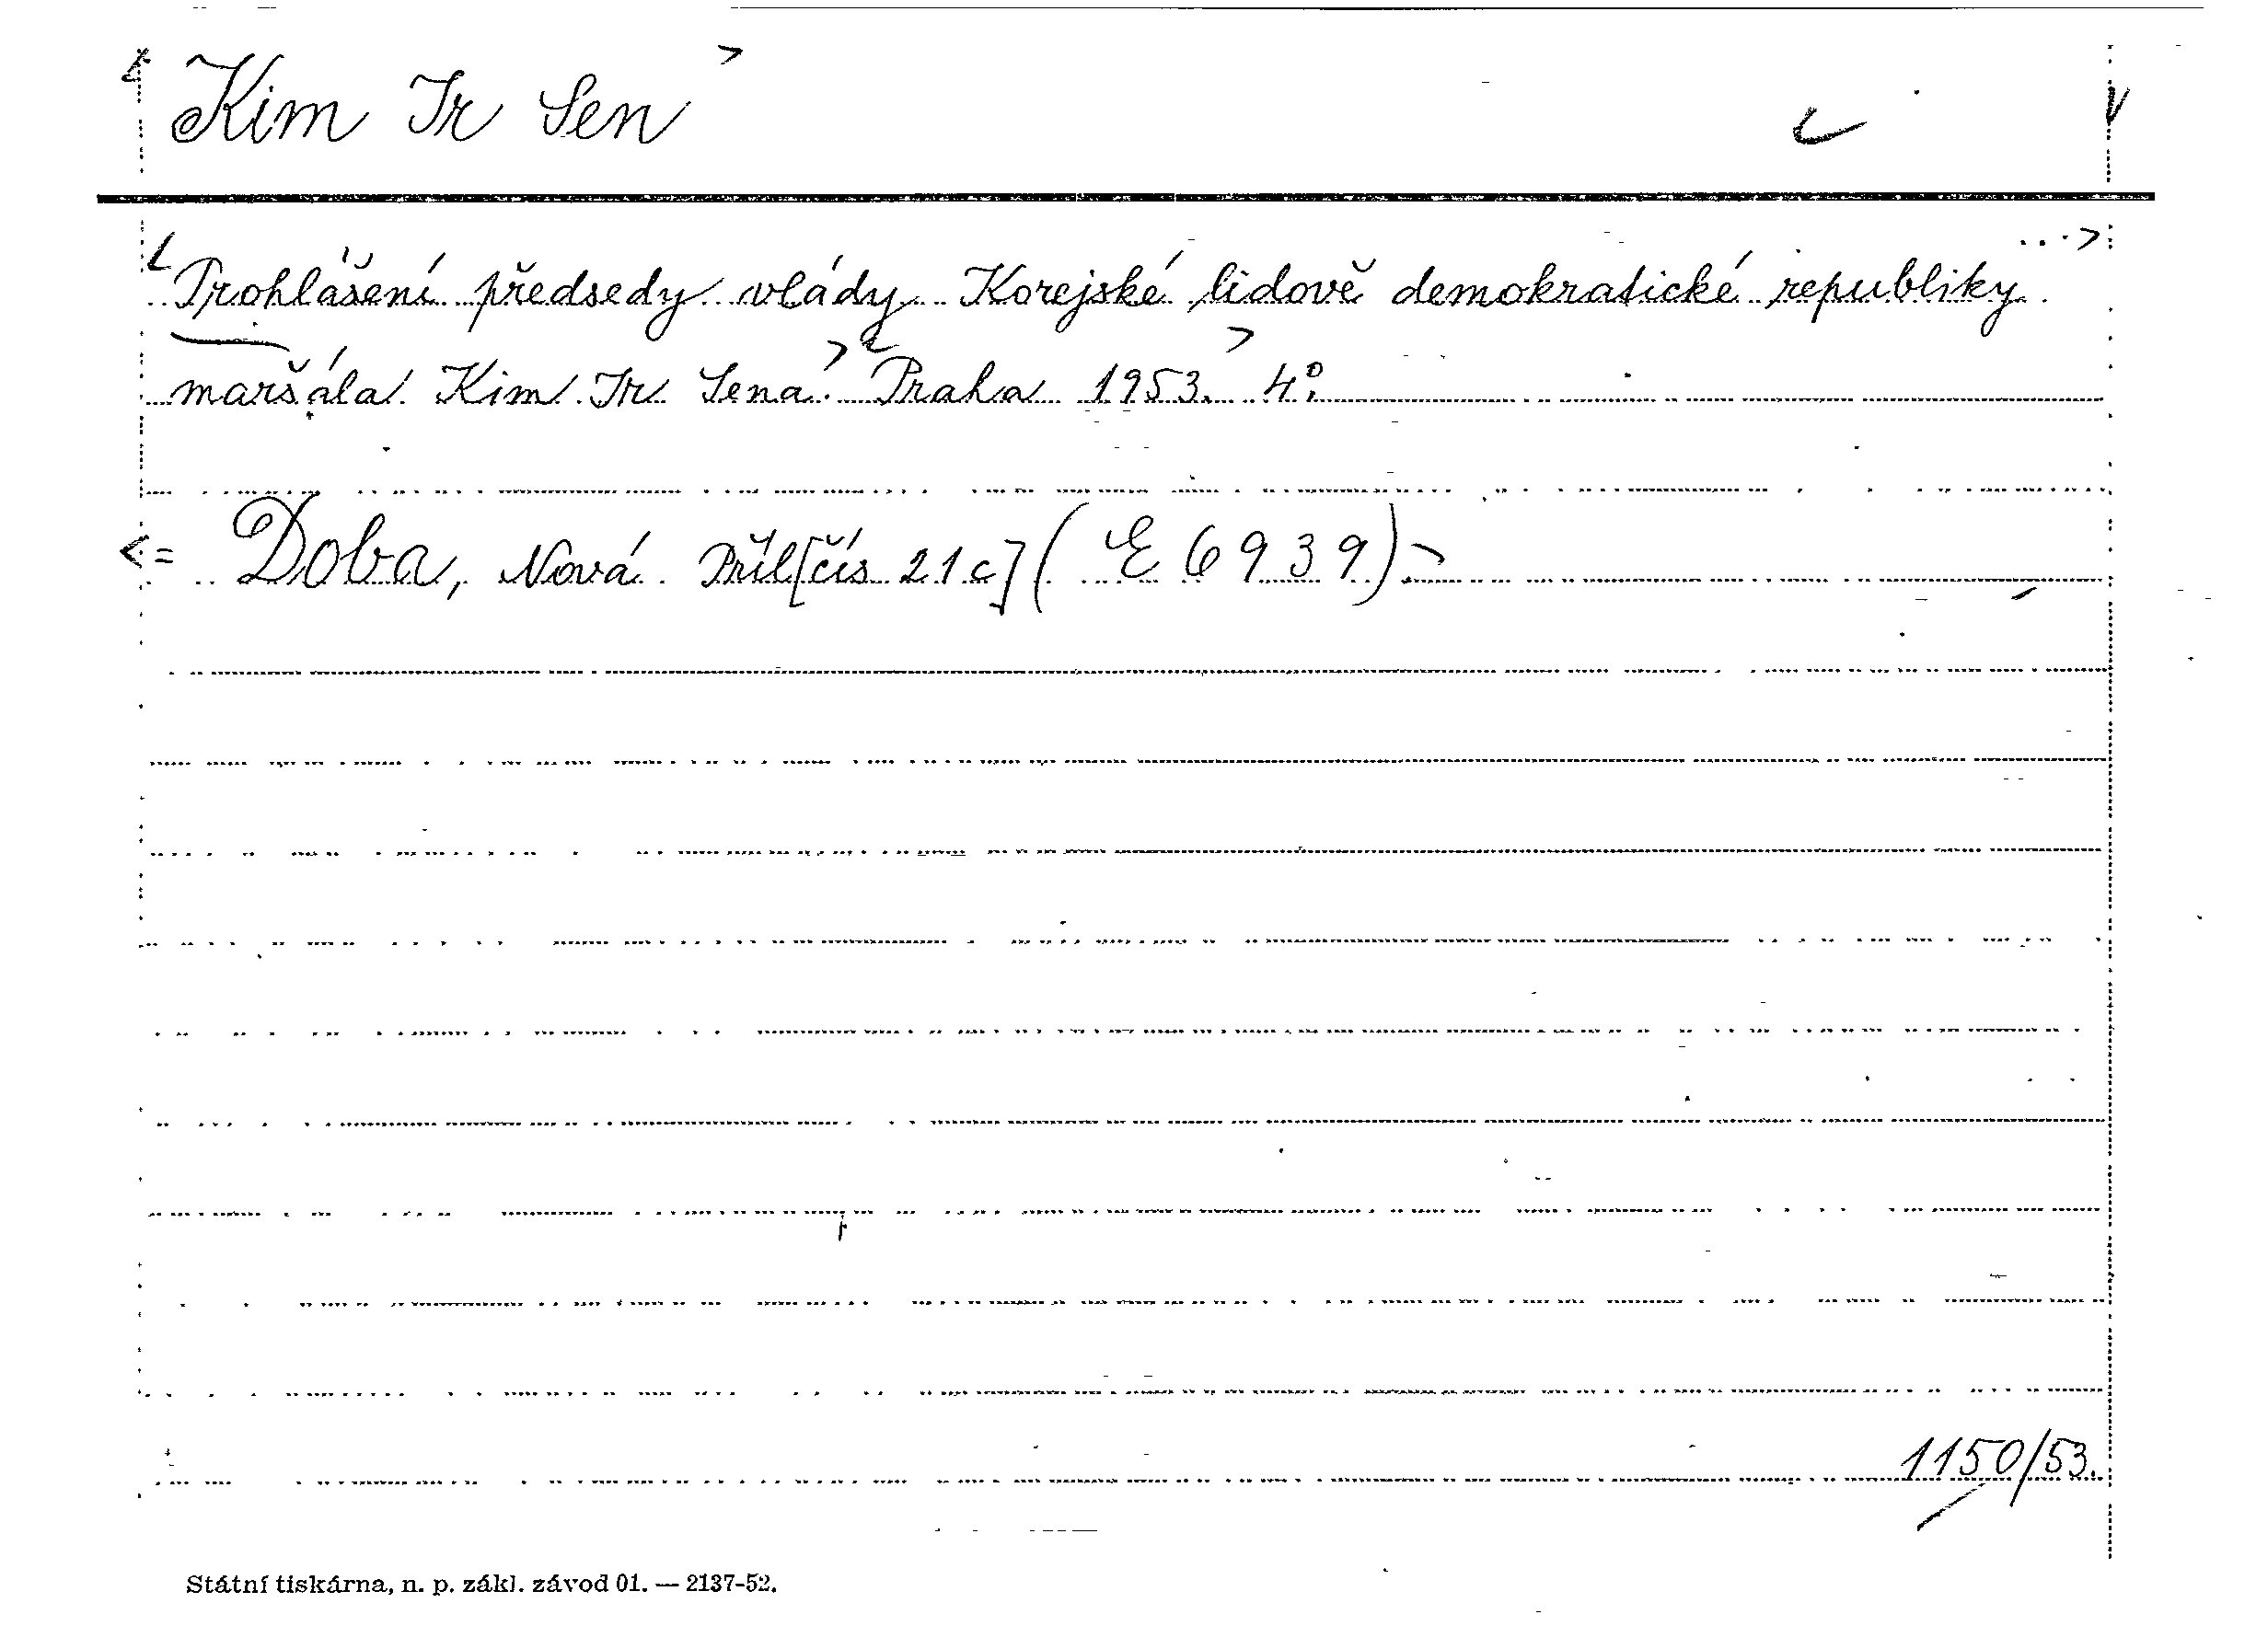 Kim Ir Sen
Prohlášení předsedy vlády Korejské lidově demokratické republiky
maršála Kim Ir Sena. Praha 1953. 4°.
= Doba, Nová. Příl[čís 21c] (E 6939)
1150/53.
Státní tiskárna, n. p. zákl. závod 01. — 2137-52.